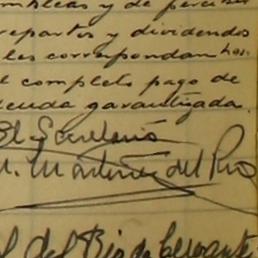 y de percibir
repartos y dividendos
les correspondan has-
el completo pago de
deuda garantizada.
El Secretario
M. Martinez del Rio
del Rio de Cervantes